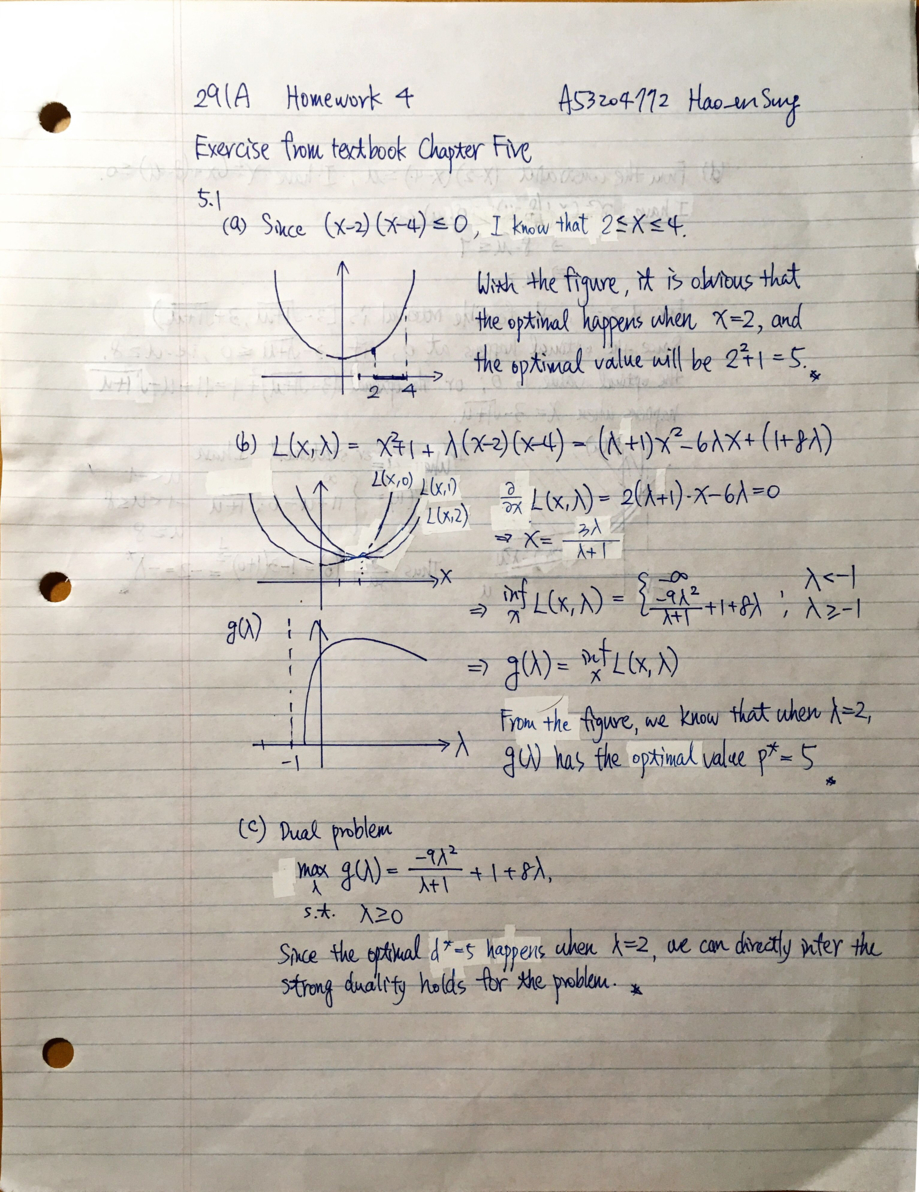 291A Homework 4 A53204772 Hao-en Sung
Exercise from textbook Chapter Five
5.1
(a) Since (x-2)(x-4) ≤ 0, I know that 2≤x≤4.
With the figure, it is obvious that
the optimal happens when x=2, and
the optimal value will be 2²+1=5.*
2 4
(b) L(x,λ) = x²+1 + λ(x-2)(x-4) = (λ+1)x²-6λx+(1+8λ)
L(x,0) L(x,1)
L(x,2)
∂/∂x L(x,λ) = 2(λ+1)·x-6λ=0
⇒ x= 3λ/(λ+1)
x
⇒ inf_x L(x,λ) = { -∞ ; λ<-1
-9λ²/(λ+1) +1+8λ ; λ≥-1
g(λ)
⇒ g(λ) = inf_x L(x,λ)
From the figure, we know that when λ=2,
λ
-1
g(λ) has the optimal value p*=5 *
(c) Dual problem
max_λ g(λ) = -9λ²/(λ+1) +1+8λ,
s.t. λ≥0
Since the optimal d*=5 happens when λ=2, we can directly inter the
strong duality holds for the problem. *